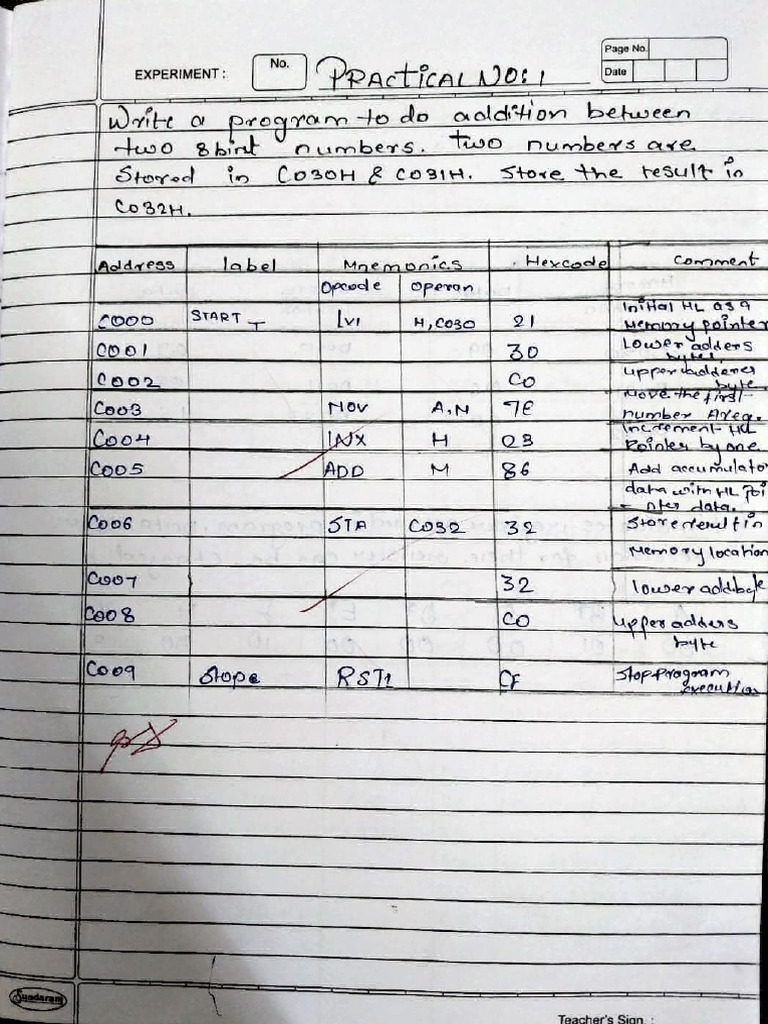 EXPERIMENT : No. PRACTICAL NO:1 Page No.
Date
Write a program to do addition between
two 8bint numbers. two numbers are
Stored in C030H & C031H. Store the result in
C032H.
Address label Mnemonics Hexcode comment
Opcode Operan
C000 START IVI H, C030 21 Initial HL as a
Memory pointer
C001 30 Lower adders
byte.
C002 C0 upper adders
byte.
C003 MOV A, M 7E Move the first
number Areg.
C004 INX H 23 Increment HL
Pointer by one
C005 ADD M 86 Add accumulator
data with HL Poi
-nter data.
C006 STA C032 32 Store result in
Memory location
C007 32 lower add.byte
C008 C0 upper adders
byte
C009 Stope RST1 CF Stop program
execution
Sundaram
Teacher's Sign. :